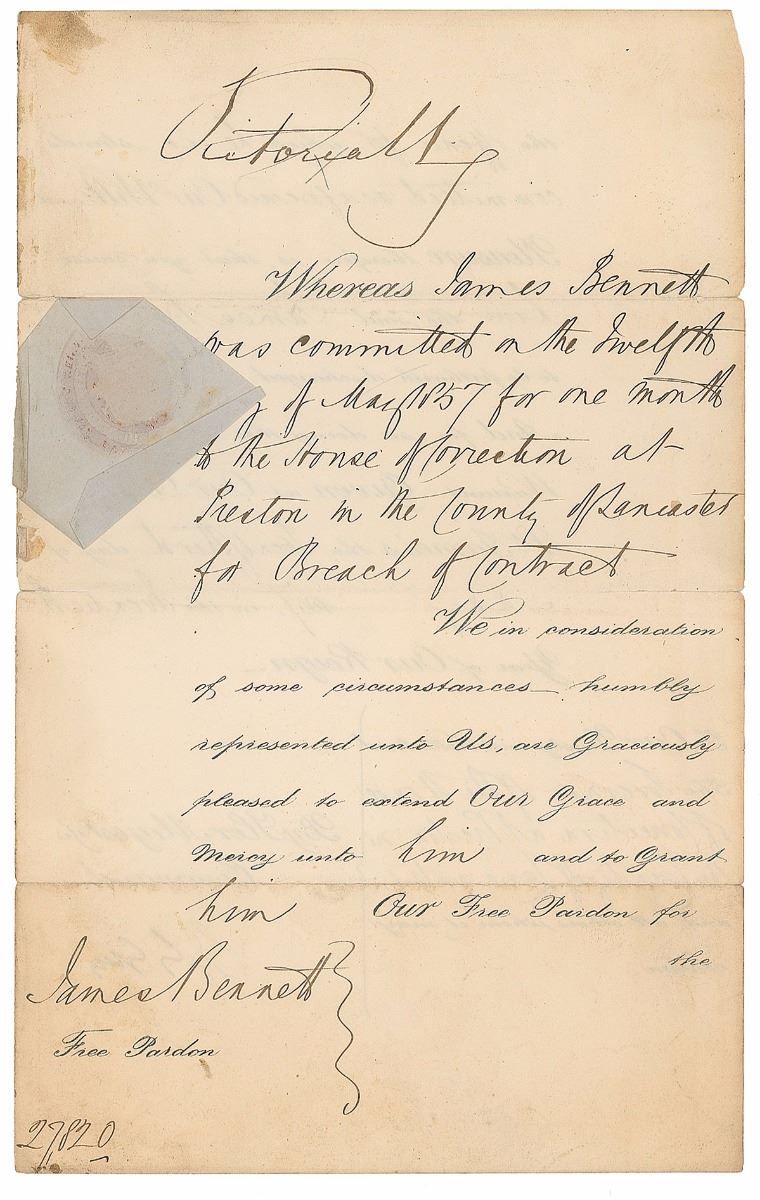 Victoria R
Whereas James Bennett
was committed on the Twelfth
y of May 1857 for one month
to the House of Correction at
Preston in the County of Lancaster
for Breach of Contract
We in consideration
of some circumstances humbly
represented unto Us, are Graciously
pleased to extend Our Grace and
Mercy unto him and to Grant
him Our Free Pardon for
the
James Bennett
Free Pardon
27820